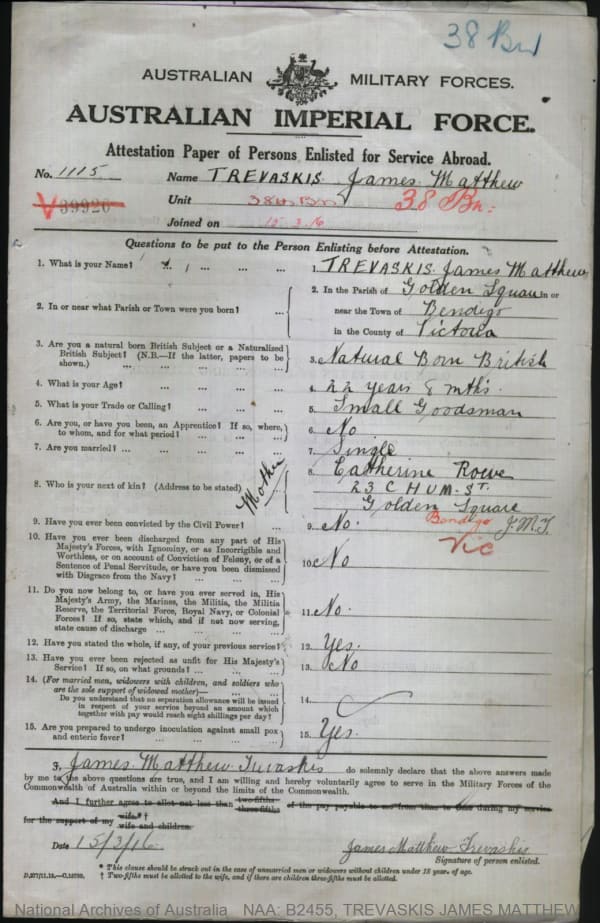 38 Bn
AUSTRALIAN MILITARY FORCES.
AUSTRALIAN IMPERIAL FORCE.
Attestation Paper of Persons Enlisted for Service Abroad.
No. 1115 Name TREVASKIS James Matthew
V39926 Unit 38th Bn 38 Bn:
Joined on 15.2.16
Questions to be put to the Person Enlisting before Attestation.
1. What is your Name? ... ... ... 1. TREVASKIS James Matthew
2. In or near what Parish or Town were you born? ... 2. In the Parish of Golden Square in or
near the Town of Bendigo
in the County of Victoria
3. Are you a natural born British Subject or a Naturalized
British Subject? (N.B.—If the latter, papers to be
shown.) ... ... ... ... 3. Natural Born British
4. What is your Age? ... ... ... 4. 22 years 8 mths.
5. What is your Trade or Calling? ... ... ... 5. Small Goodsman
6. Are you, or have you been, an Apprentice? If so, where,
to whom, and for what period? ... ... ... 6. No
7. Are you married? ... ... ... ... 7. Single
8. Who is your next of kin? (Address to be stated) Mother 8. Catherine Rowe
23 CHUM-ST.
Golden Square
Bendigo J.M.T.
Vic
9. Have you ever been convicted by the Civil Power? ... 9. No.
10. Have you ever been discharged from any part of His
Majesty's Forces, with Ignominy, or as Incorrigible and
Worthless, or on account of Conviction of Felony, or of a
Sentence of Penal Servitude, or have you been dismissed
with Disgrace from the Navy? ... ... ... 10. No
11. Do you now belong to, or have you ever served in, His
Majesty's Army, the Marines, the Militia, the Militia
Reserve, the Territorial Force, Royal Navy, or Colonial
Forces? If so, state which, and if not now serving,
state cause of discharge ... ... ... 11. No.
12. Have you stated the whole, if any, of your previous service? 12. Yes.
13. Have you ever been rejected as unfit for His Majesty's
Service? If so, on what grounds? ... ... 13. No
14. (For married men, widowers with children, and soldiers who
are the sole support of widowed mother)—
Do you understand that no separation allowance will be issued
in respect of your service beyond an amount which
together with pay would reach eight shillings per day? 14.
15. Are you prepared to undergo inoculation against small pox
and enteric fever? ... ... ... 15. Yes.
I, James Matthew Trevaskis do solemnly declare that the above answers made
by me to the above questions are true, and I am willing and hereby voluntarily agree to serve in the Military Forces of the
Commonwealth of Australia within or beyond the limits of the Commonwealth.
And I further agree to allot not less than two-fifths three-fifths of the pay payable to me from time to time during my service
for the support of my wife*† wife and children
Date 15/2/16. James Matthew Trevaskis
Signature of person enlisted.
* This clause should be struck out in the case of unmarried men or widowers without children under 18 years of age.
† Two-fifths must be allotted to the wife, and if there are children three-fifths must be allotted.
National Archives of Australia NAA: B2455, TREVASKIS JAMES MATTHEW